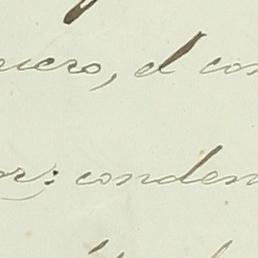 uero, el con
or: conden